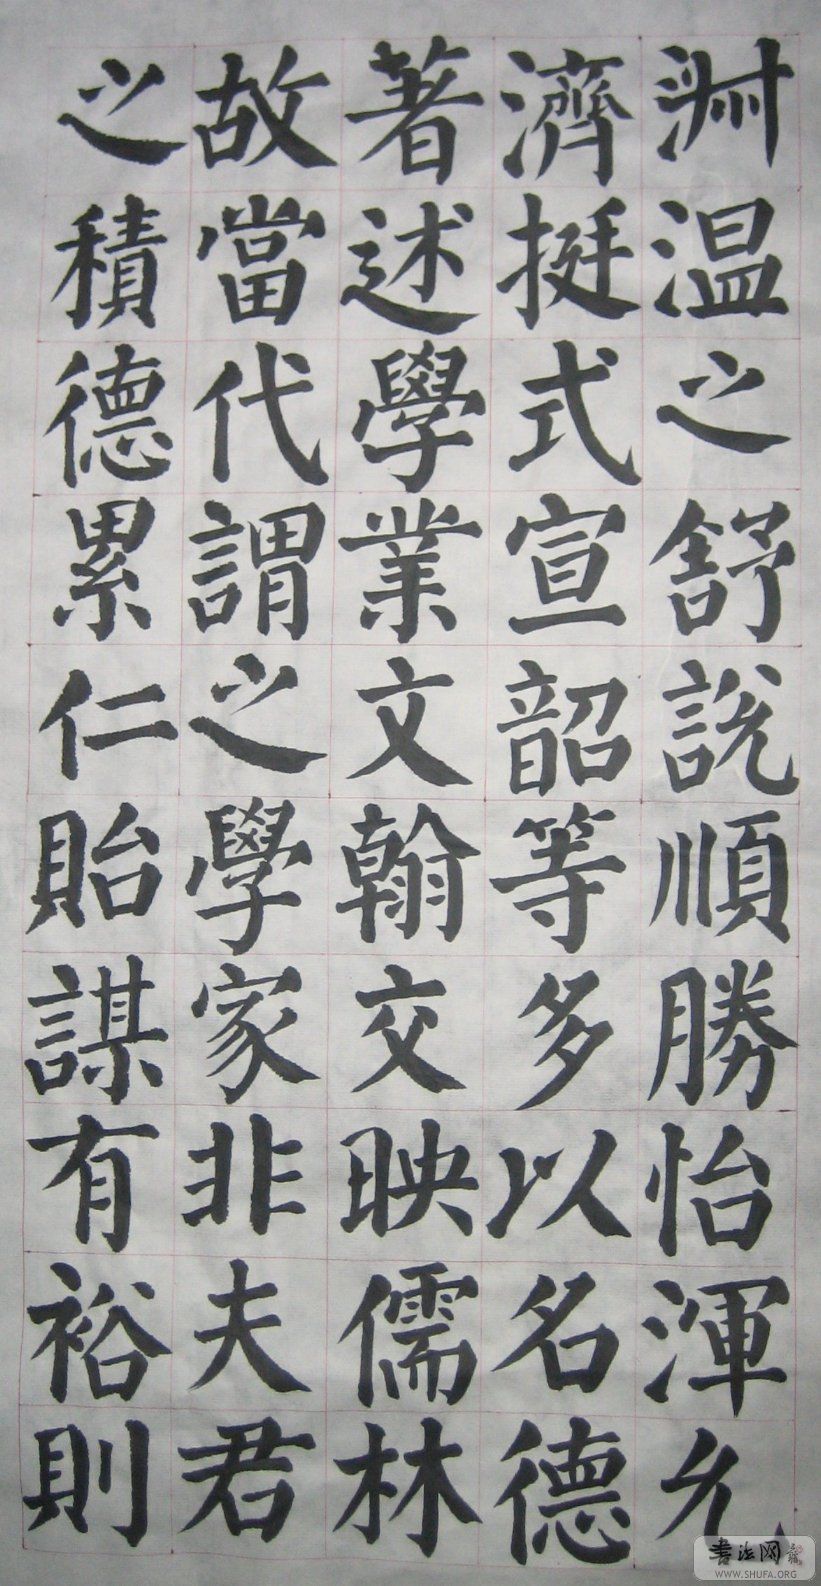 淑温之舒説順勝怡渾允
濟挺式宣韶等多以名德
著述學業文翰交映儒林
故當代謂之學家非夫君
之積德累仁貽謀有裕則
書法网
WWW.SHUFA.ORG